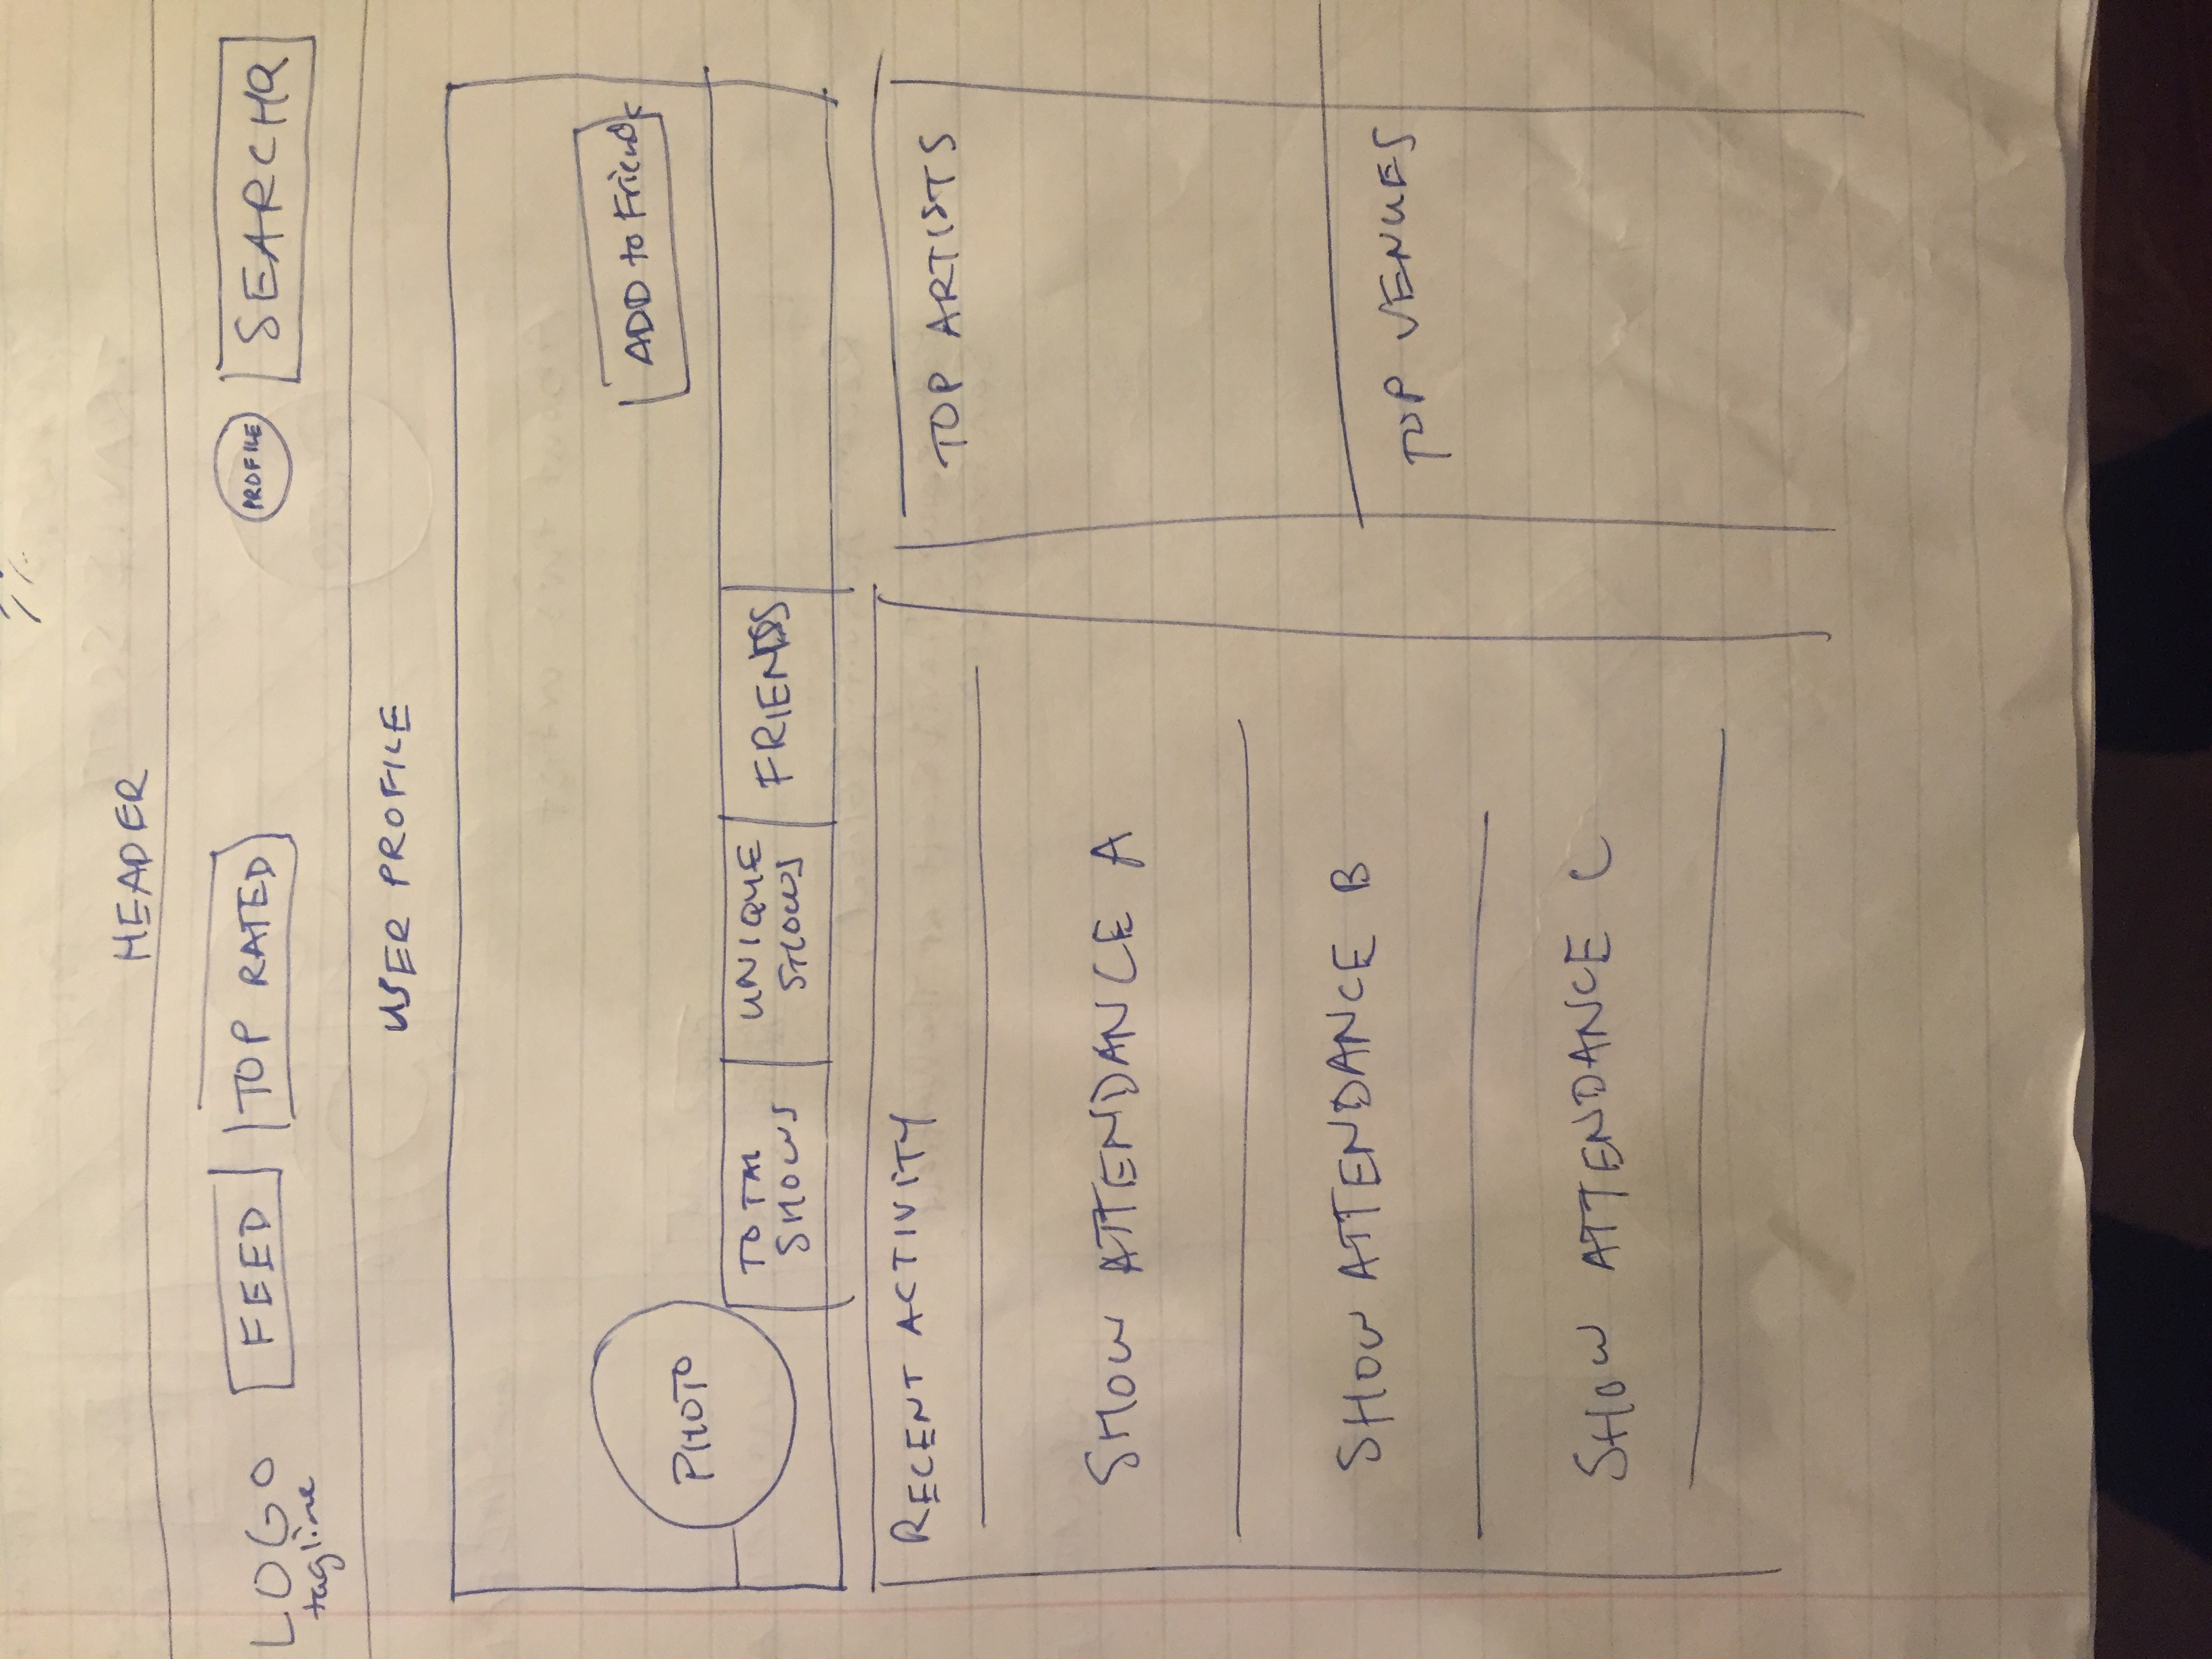 HEADER
LOGO
tagline
FEED
TOP RATED
PROFILE
SEARCHQ
USER PROFILE
ADD to Friends
PHOTO
TOTAL
SHOWS
UNIQUE
SHOWS
FRIENDS
RECENT ACTIVITY
SHOW ATTENDANCE A
SHOW ATTENDANCE B
SHOW ATTENDANCE C
TOP ARTISTS
TOP VENUES